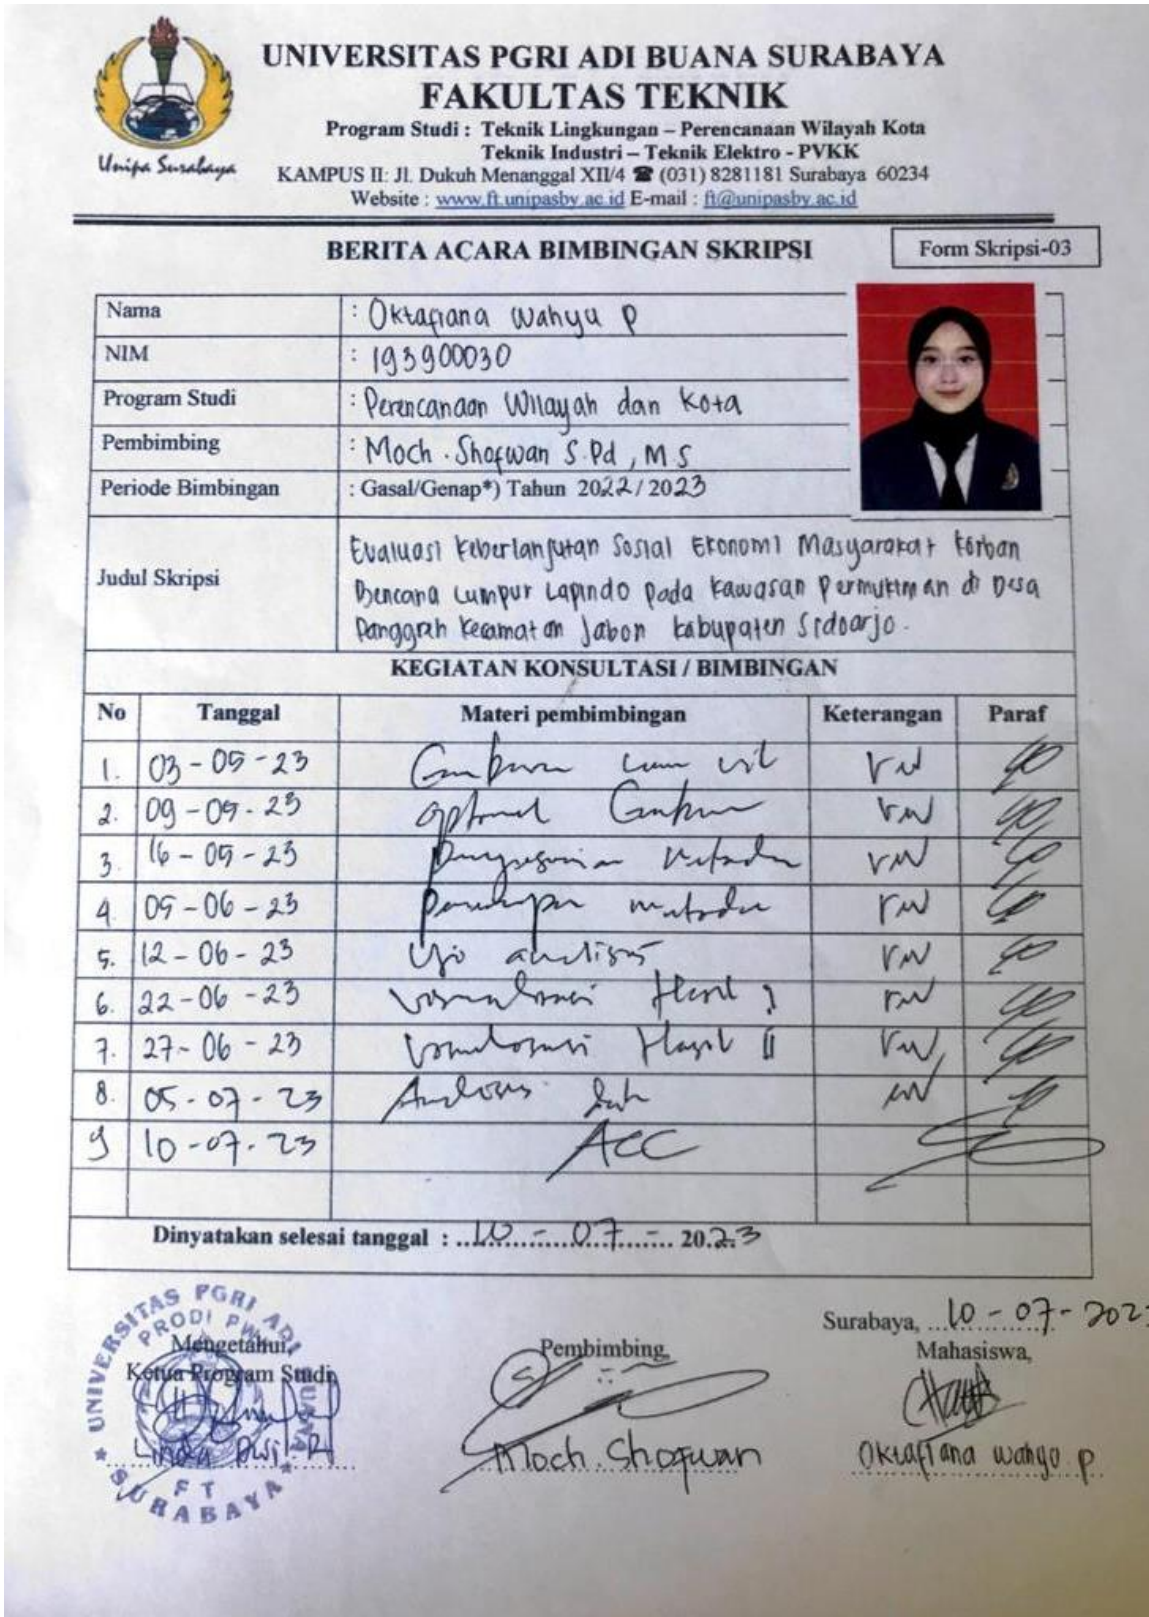 UNIVERSITAS PGRI ADI BUANA SURABAYA
FAKULTAS TEKNIK
Program Studi : Teknik Lingkungan – Perencanaan Wilayah Kota
Teknik Industri – Teknik Elektro - PVKK
KAMPUS II: Jl. Dukuh Menanggal XII/4 ☎ (031) 8281181 Surabaya 60234
Website : www.ft.unipasby.ac.id E-mail : ft@unipasby.ac.id
Unipa Surabaya
BERITA ACARA BIMBINGAN SKRIPSI
Form Skripsi-03
Nama : Oktafiana Wahyu P
NIM : 193900030
Program Studi : Perencanaan Wilayah dan Kota
Pembimbing : Moch. Shofwan S.Pd, M S
Periode Bimbingan : Gasal/Genap*) Tahun 2022/2023
Judul Skripsi
Evaluasi Keberlanjutan Sosial Ekonomi Masyarakat Korban
Bencana Lumpur Lapindo pada Kawasan Permukiman di Desa
Panggrah Kecamatan Jabon Kabupaten Sidoarjo.
KEGIATAN KONSULTASI / BIMBINGAN
No Tanggal Materi pembimbingan Keterangan Paraf
1. 03-05-23
2. 09-05-23
3. 16-05-23
4. 05-06-23
5. 12-06-23 analisis
6. 22-06-23 Hasil I
7. 27-06-23 Hasil II
8. 05-07-23
9 10-07-23 ACC
Dinyatakan selesai tanggal : 10 - 07 - 2023
Surabaya, 10-07-2023
Mengetahui,
Ketua Program Studi,
Pembimbing,
Mahasiswa,
Linda Dwi. R
Moch. Shofwan
Oktafiana Wahyu P
UNIVERSITAS PGRI ADI BUANA
PRODI PWK
FT
SURABAYA